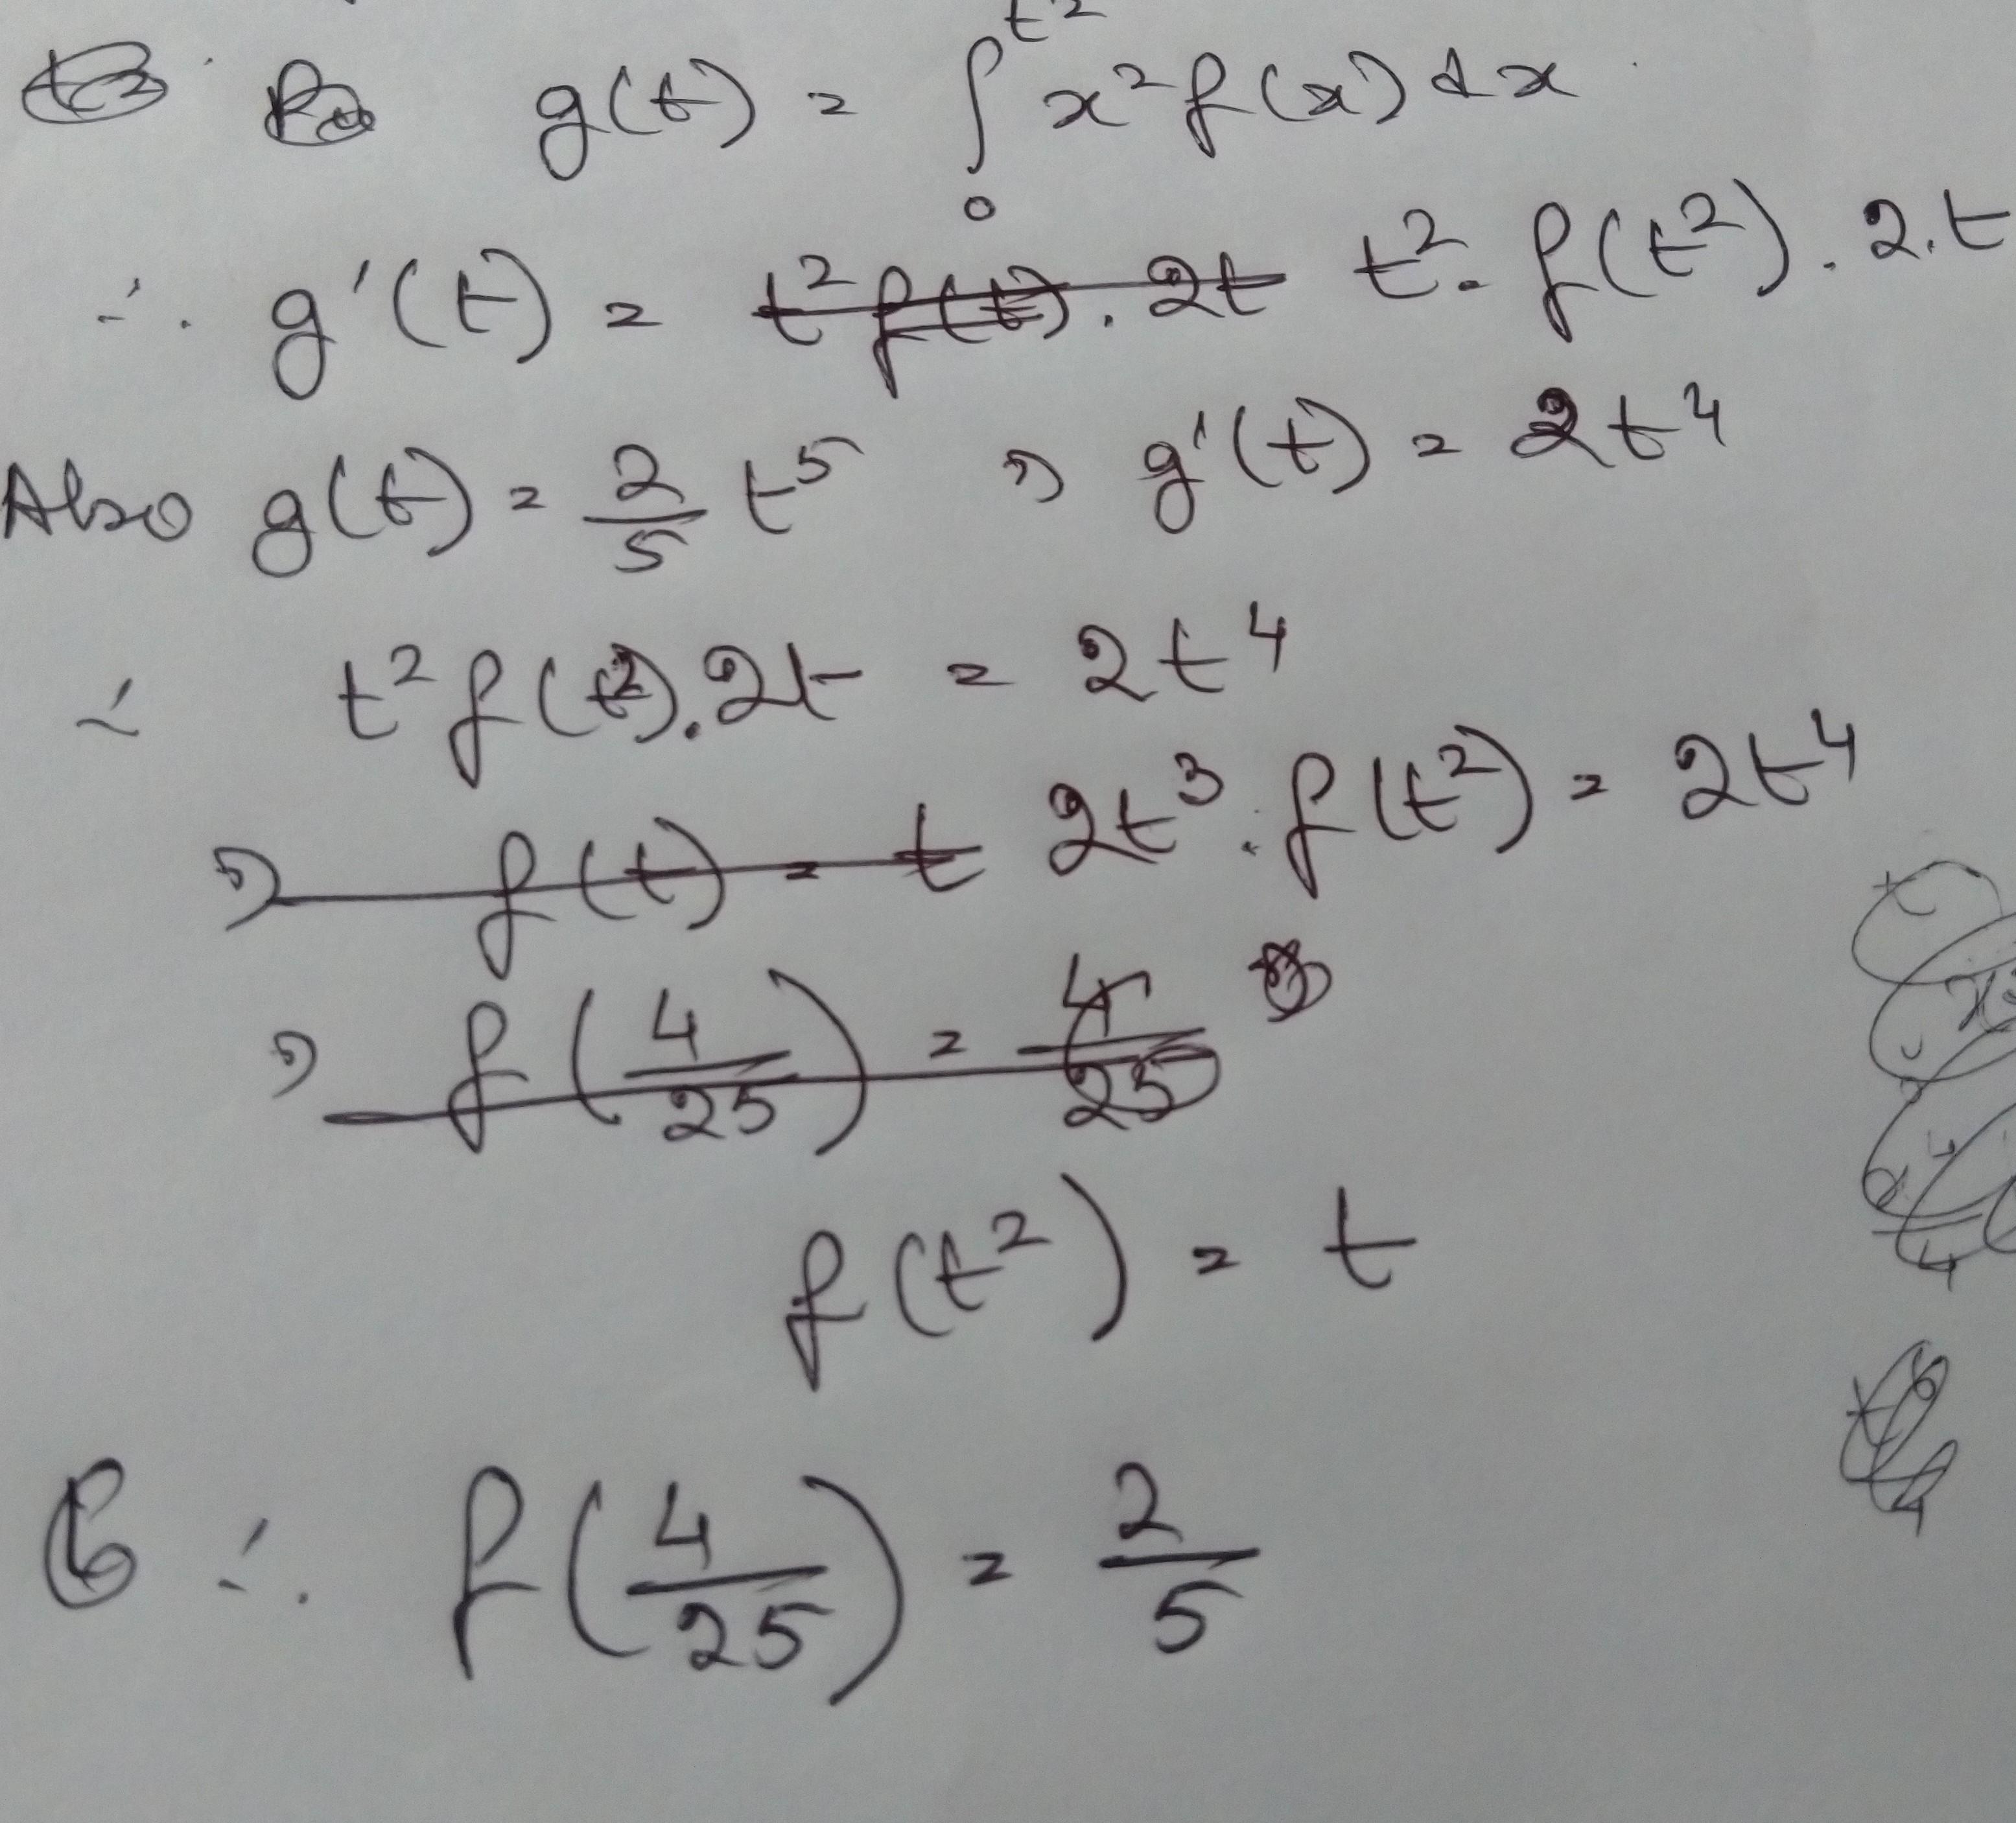 g(t) = ∫₀^{t²} x² f(x) dx
∴ g'(t) = t² f(t). 2t t². f(t²). 2.t
Also g(t) = 2/5 t⁵ ⇒ g'(t) = 2t⁴
∴ t² f(t²). 2t = 2t⁴
⇒ f(t) = t 2t³. f(t²) = 2t⁴
⇒ f(4/25) = 4/25
f(t²) = t
∴ f(4/25) = 2/5